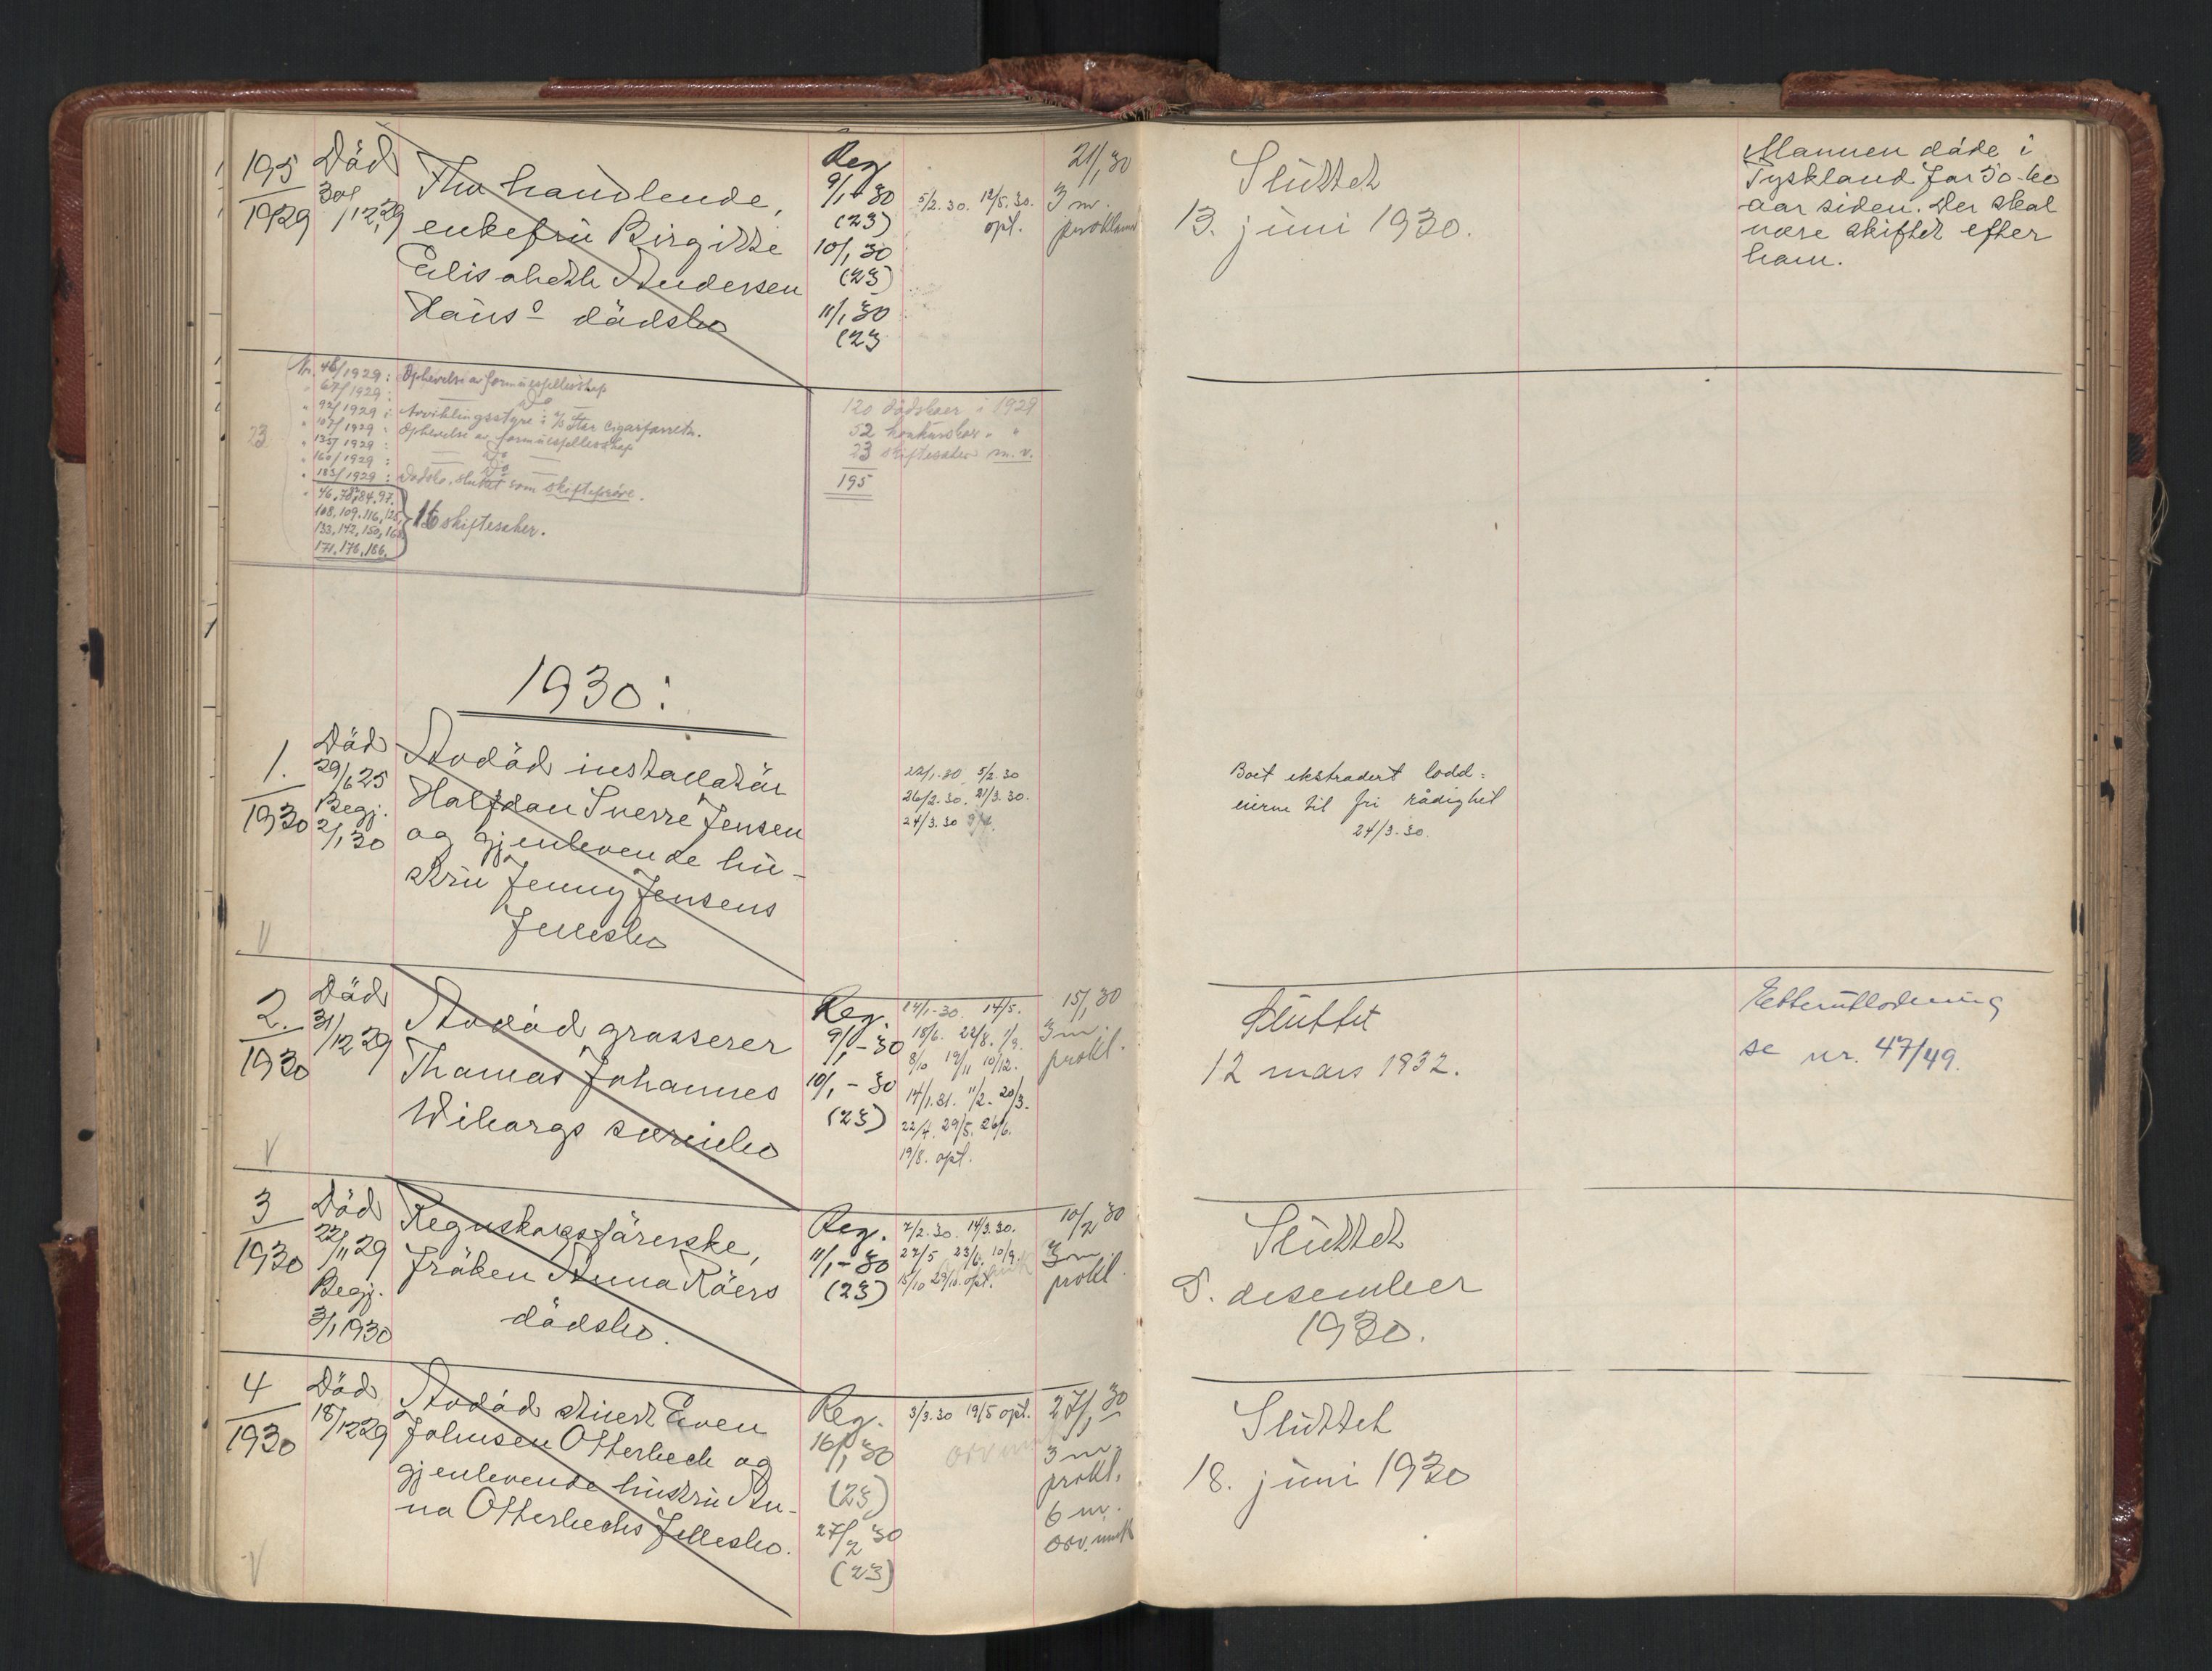 195
1929
Död
30/12 29
Fhv handlende,
enkefru Birgitte
Elisabeth Andersen
Haus' dödsbo
Reg
9/1-30
(23)
10/1 30
(23)
11/1 30
(23
5/2.30. 12/5.30.
opl.
21/1 30
3 m.
proklama
Sluttet
13. juni 1930.
Mannen döde i
Tyskland for 50-60
aar siden. Der skal
være skiftet efter
ham.
23
Nr. 46/1929: Ophevelse av formuesfellesskap
" 67/1929: Do
" 92/1929: Avviklingsstyre i A/S Star cigarfavrik.
" 107/1929: Ophevelse av formuesfellesskap
" 135/1929: Do
" 160/1929: Do
" 183/1929: Dødsbo, sluttet som skifteprøve.
" 46, 78, 84, 97.
108, 109, 116, 125,
133, 142, 150, 168
171, 178, 186.
16 skiftesaker.
120 dödsboer i 1929
52 konkursboer " "
23 skiftesaker m. v.
195
1930:
1.
1930
Död
29/6 25
Begj.
2/1 30
Avdöd installatör
Halfdan Sverre Jensen
og gjenlevende hu-
stru Jenny Jensens
fellesbo
22/1.30 5/2.30
26/2.30. 21/3.30.
24/3.30
Boet ekstradert lodd=
eierne til fri rådighet
24/3.30.
V
2.
1930
Död
31/12 29
Avdöd grosserer
Thomas Johannes
Wiborgs særbo
Reg.
9/1-30
10/1-30
(23)
14/1-30. 14/5.
18/6. 22/8. 1/9.
8/10 19/11 10/12.
14/1.31. 11/2. 20/3.
22/4. 29/5. 26/6.
19/8. opl.
15/1 30
3 m.
prokl.
Sluttet
12 mars 1932.
Etterutlodning
se nr. 47/49.
V
3
1930
Död
22/11 29
Begj.
3/1 1930
Regnskapsförerske,
fröken Anna Röers
dödsbo.
Reg.
11/1-30
(23)
7/2.30. 14/3.30.
27/5 23/6. 10/9.
15/10 29/10. opl.
10/2 30
3 m.
prokl.
Sluttet
5. desember
1930.
4
1930
Död
18/12 29
Avdöd stuert Even
Johnsen Otterbech og
gjenlevende hustru An-
na Otterbechs fellesbo.
Reg.
16/1 30
(23)
27/2 30
(23)
3/3.30 19/5 opl.
27/1 30
3 m.
prokl.
6 m.
orv. innk
Sluttet
18. juni 1930
V